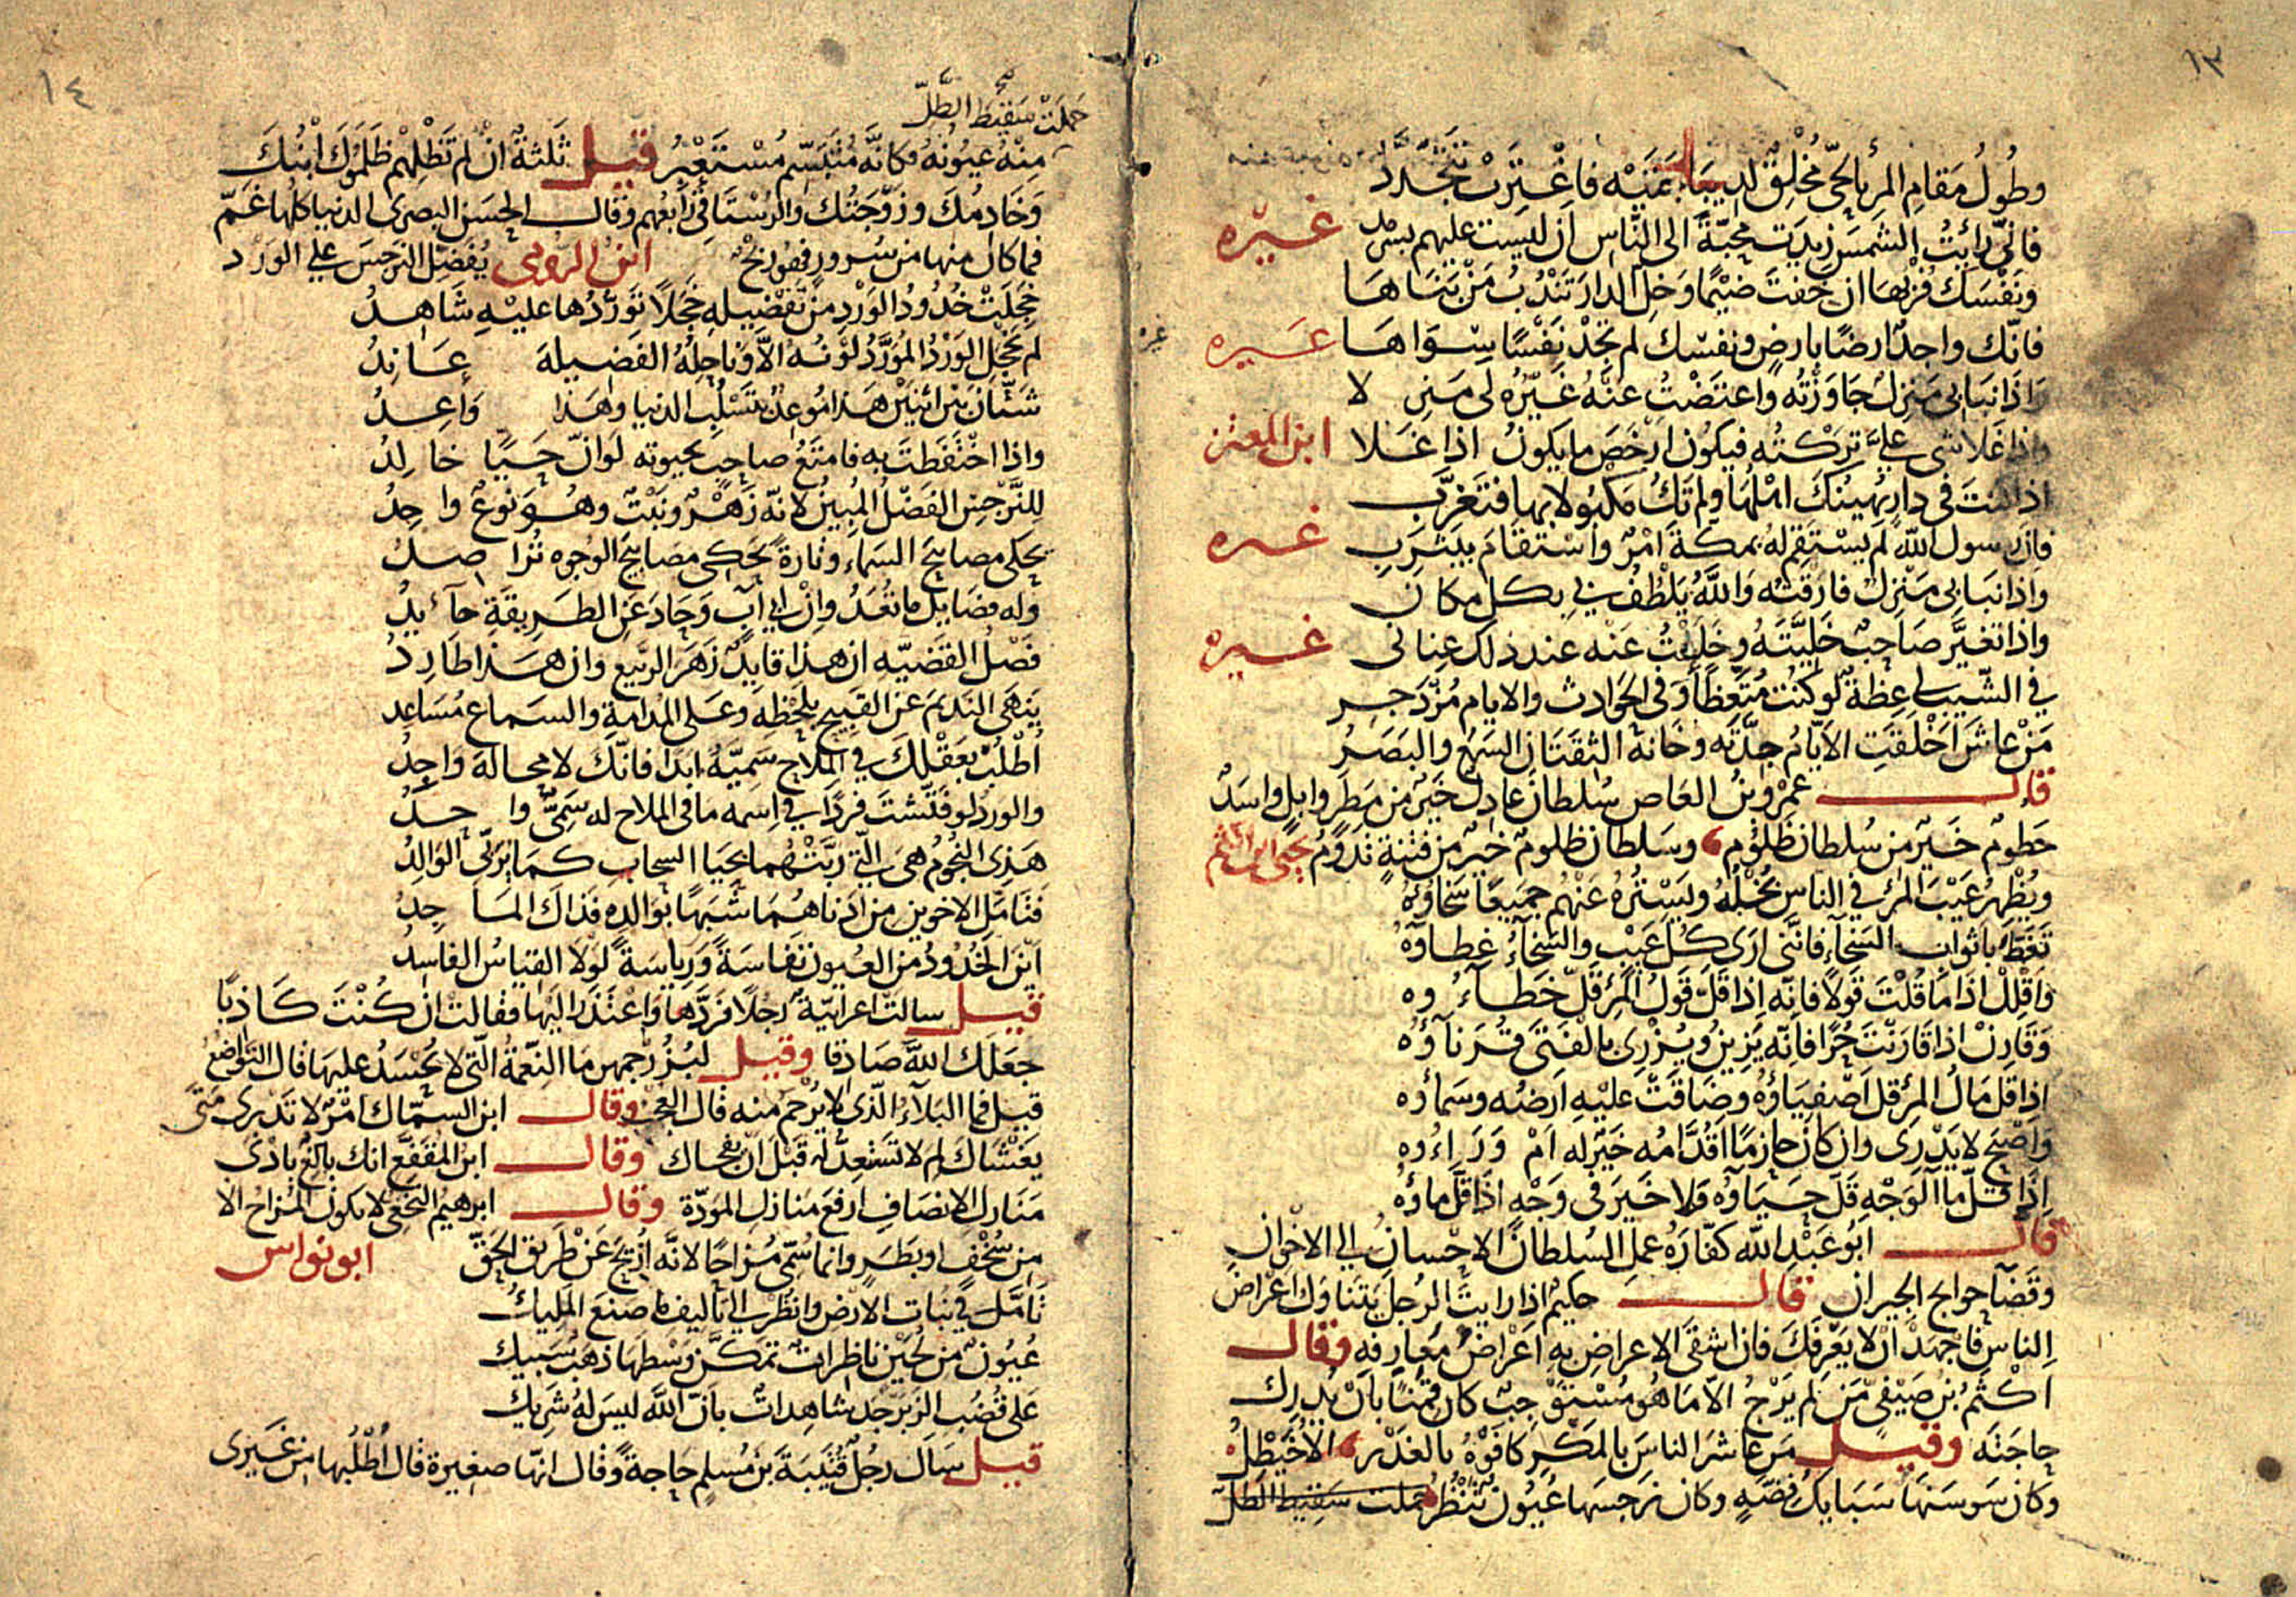 ١٣
وطُولُ مَقامِ المَرءِ بالحَيّ مُخْلِقٌ لديباجَتَيْه فاغْتَرِبْ تَتَجَدَّد
فانّى رَايْتُ الشمسَ زيدت محبّةً الى النّاس ان ليست عليهم بسرمد غيره
ونَفْسَكَ فُزْبها ان خفتَ ضيْمًا وخلّ الدارَ تَنْدُبُ مَنْ بَنَاهَا
فانّك واجدٌ ارضًا بارضٍ ونفسَك لم تَجدْ نَفْسًا سِوَاهَا غيره
غيره
وَاذَا نبَا بى مَنزلٌ جَاوَزْتُه واعتَضْتُ عنْهُ غَيْرَهُ لى مَنزِلا
واذا غَلا شى علىَّ تركتُه فيكُونُ ارْخَصَ ما يكونُ اذا غَلا ابن المعتز
اذا كنتَ فى دارٍ يُهينُكَ اهْلُهَا ولم تَكُ مَكبُولا بها فتَغَرَّب
فانّ رسول اللّه لم يسْتَقِم لهُ بمكّةَ امْرٌ واسْتَقَامَ بيَثْرِبِ غيره
واذا نبَا بى مَنْزِلٌ فارقتُه وَاللَّهُ يَلْطُفُ بي بكل مكان
واذا تغيَّرَ صَاحِبٌ خَلَّيتَهُ وخَلَعْتُ عَنْه عند ذلك عنانى غيره
في الشّيب لى عِظةٌ لو كُنْت مُتَّعِظًا وفى الحوادث والايام مُزْدَجر
مَنْ عاشَ اَخْلَقَتِ الاَيّامُ جِدَّتَه وخَانهُ الثّقَتَانِ السَّمْعُ والبَصَرُ
قال عمْرو بنُ العَاصِ سُلطانٌ عادلٌ خَيْرٌ من مَطَرٍ وابلٍ واسَدٌ
حَطومٌ خَيْرٌ من سُلطان ظَلُوْمٍ، وسَلطان ظلومٌ خيرٌ من فتنةٍ تَدُومُ
ويُظْهِرُ عَيْبَ المَرْءِ في الناس بُخْلُهُ ويَسْتُرُهُ عَنْهُم جميعًا سَخَاؤُهُ
تَغَطَّ باثواب السَّخآءِ فانَّنى ارَى كُلَّ عَيْبٍ والسَّخآءُ غِطاوُهُ
وَاَقْلِلْ اذَا مَا قُلْتَ قَولاً فانّه اِذا قَلَّ قَوْلُ المَرْءِ قلّ خَطاءُوه
وَقَارِنْ اذا قَارَنْتَ حُرًّا فانّه يَزِينُ ويُزْرِى بالفَتَى قُرَنآؤُه
اِذا قلّ مَالُ المَرْءِ قل اَصْفِيَاؤُهُ وضَاقَتْ عليْهِ اَرضُه وسَماؤُه
وَاَصْبَحَ لا يَدْرى وان كانَ حازِمًا اَقُدَّامُه خَيْرٌ له اَمْ وَرَاءُوه
اِذا قلّ مآ الوَجْهِ قلّ حَيَاؤُه ولا خَيرَ فى وَجْهٍ اذَا قَلَّ ماؤُهُ
قال اَبُو عَبْدِ اللّه كفّارَةُ عملِ السُلطانِ الاِحْسانُ الى الاخْوانِ
وقَضآ حوايج الجيران قال حكيمٌ اذا رايتَ الرجلَ يتَناوَل اعراضَ
الناس فاجهَدْ اَنْ لا يَعْرفَكَ فان اشقَى الاعراضِ بِهِ اَعْرَاضُ مَعارِفهِ وقال
اَكْثَمُ بنُ صَيْفِىٍّ مَن لم يَرْجُ الاّ مَا هُو مُسْتَوْجِبٌ كان قَمِنًا بانْ يُدْركَ
حاجَتَه وقيل مَن عاشَر الناسَ بالمَكْرِ كافَوْهُ بالغَدْرِ، الاُخَيْطِلُ
وكان سَوسَنَها سَبَايكُ فضّةٍ وكان نرجسَها عُيُونٌ تَنْظُرُ حملت سَقِيطَ الطّلّ
١٤
حَمَلَتْ سَقيْطَ الطَّلّ
منْهُ عيُونُهُ فكانّهُ مُتَبَسِّمٌ مُسْتَعْبِرُ قيل ثَلثةٌ انْ لم تَظْلِمْهم ظَلَمُوكَ ابْنُكَ
وَخَادِمُكَ وزَوْجَتُك والرُسْتَاقىّ رَابعُهم وقال الحسَن البصرى الدنيا كلها غَمّ
فما كان منها من سُرورٍ فهو رِبْحٌ ابن الرومى يُفَضّل النرجسَ على الوَرْد
خَجِلَتْ خُدُودُ الوَرْدِ مِنْ تَفْضِيلِهِ خَجَلاً تَوَرُّدُها عليْهِ شَاهِدُ
لم يَخْجَلِ الوَرْدُ المُوَرَّدُ لَوْنُهُ الاَّ وناحِلُهُ الفَضِيلةَ عَانِدُ
شَتّانَ بيْنَ اثْنَيْنِ هَذا مُوعدٌ بتَسَلُّبِ الدنيا وهَذا وَاعِدُ
واذا احْتَفَظتَ به فامتَعُ صاحبٍ بحيوته لَوْ انّ حَيًّا خالِدُ
لِلنَّرْجِسِ الفَضْلُ المُبِينُ لانّهُ زَهْرٌ ونَبْتٌ وهُوَ نوعٌ واحِدُ
يحكى مصابيحَ السَماءِ وتارةً يَحكِى مصَابيحَ الوُجوه تُرَاصدُ
وله فضَايل ما تُعَدُّ وانْ ابى آبٍ وَحَادَ عَنِ الطَريقَةِ حآيدُ
فَصْلُ القَضيّه ان هذا قايدٌ زهَرَ الرّبيعِ وان هَذا طَارِدُ
يَنهَى النَّديمَ عَن القَبِيح بلَحْظِه وعَلى المُدَامَةِ والسَماعِ مُسَاعِد
اُطْلُبْ بعَقْلِكَ في المِلاحِ سَمِيَّهُ ابدًا فانّكَ لا محالةَ واجِدُ
والورْد لو فَتَّشتَ فردًا في اِسْمه ما فى الملاح له سَمِىٌّ واحدُ
هَذِى النّجُومُ هى الّتى رَبَّتْهُما بحَيَا السحابِ كمَا يُرَبّى الوالِدُ
فَتَامّلِ الاخوين مِن اَدْناهُمَا شَبَهًا بوَالدِهِ فَذاكَ المَاجِدُ
اَيْنَ الخُدُودُ منَ العُيونِ نَفَاسَةً وَرِيَاسَةً لَوْلا القِياسُ الفاسِدُ
قيل سالت اعرابيّةٌ رَجلاً فردَّها وَاعْتَذَرَ اليْها فقالت انْ كُنْتَ كَاذبًا
جَعَلَكَ اللَّهُ صَادِقا وقيل لبُزُرْجمهر مَا النِّعمَةُ الّتى لا يُحْسَدُ عليهَا قال التواضعُ
قيل فما البَلآءُ الّذى لا يُرْحَمُ منه قال العجب وقال ابن السمّاك امْرٌ لا تَدْرى متى
يغْشَاكَ لم لا تَسْتَعِدُّ لَه قَبْلَ اَنْ يفجاك وقال ابن المقفّع انك بالغٌ بادْنَى
مَنَازِلِ الانْصَافِ ارفَعَ مَنازِل المَودّة وقال ابرهيم النّخَعى لا يكون المُزاحُ الا
من سُخْفٍ او بَطَرٍ وانما سُمّى مُزاحًا لانّه اُزِيحَ عَنْ طَريق الحقّ ابو نواس
تَامَّل في نَبات الارْضِ وانظُرْ الى تاليف ما صنَعَ المَليكُ
عُيُونٌ من لُجَيْنٍ ناظِراتٌ تمَكَّن وَسْطَها ذهَبٌ سَبيكُ
عَلى قُضُبِ الزبَرْجَد شاهِداتٌ بانّ اللَّهَ ليسَ لهُ شَرِيكُ
قيل سَال رجُلٌ قُتَيْبَةَ بنَ مُسْلِمٍ حاجةً وقال انّها صغيرة قال اُطْلُبها مِن غَيرى